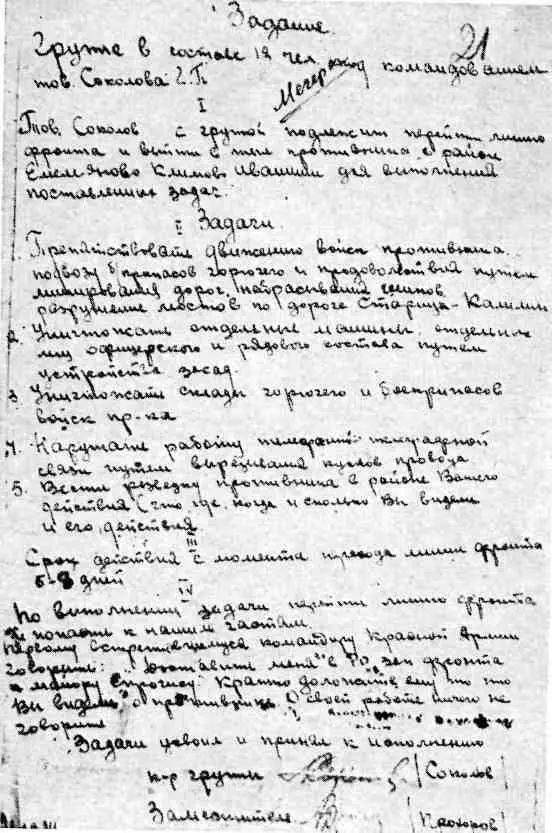 Задание
21
Группе в составе 12 чел под командованием
тов. Соколова Г. П
I
Тов. Соколов с группой подлежит перейти линию
фронта и выйти в тыл противника в район
Емельяново Климово Ивашики для выполнения
поставленных задач.
II Задачи
Препятствовать движению войск противника
подвозу б'припасов горючего и продовольствия путем
минирования дорог, набрасывания шипов
разрушение мостов по дороге Старица-Калинин
2. Уничтожать отдельные машины, отдельных
лиц офицерского и рядового состава путем
устройства засад.
3. Уничтожать склады горючего и боеприпасов
войск пр-ка
4. Нарушать работу телеграфной
связи путем вырезывания кусков провода
5. Вести разведку противника в районе Вашего
действия (что, где, когда и сколько Вы видели
и его действия.
III
Срок действия с момента перехода линии фронта
6-8 дней
IV
По выполнении задачи перейти линию фронта
и попасть к нашим частям.
Первому встретившемуся командиру Красной Армии
говорите: "Доставьте меня в Р.О. фронта
к майору Строгису" Кратко доложите ему то что
Вы видели о противнике. О своей работе ничего не
говорите
Задачи усвоил и принял к исполнению
к-р группы (Соколов)
Заместитель (Прохоров)